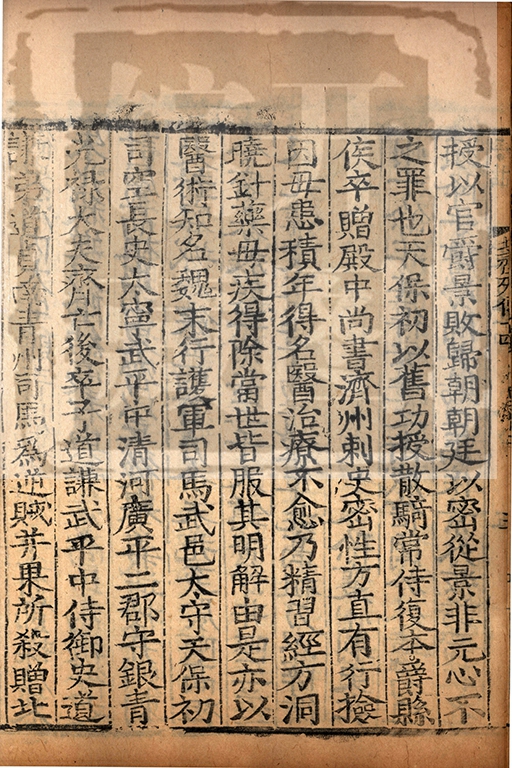 授以官爵景敗歸朝朝廷以密從景非元心不
之罪也天保初以舊功授散騎常侍復本爵縣
侯卒贈殿中尚書濟州刺史密性方直有行撿
因母患積年得名醫治療不愈乃精習經方洞
曉針藥母疾得除當世皆服其明解由是亦以
醫術知名魏末行護軍司馬武邑太守天保初
司空長史太寧武平中清河廣平二郡守銀青
光祿大夫齊亡後卒子道謙武平中侍御史道
謙弟道貞青州司馬爲逆賊并果所殺贈北